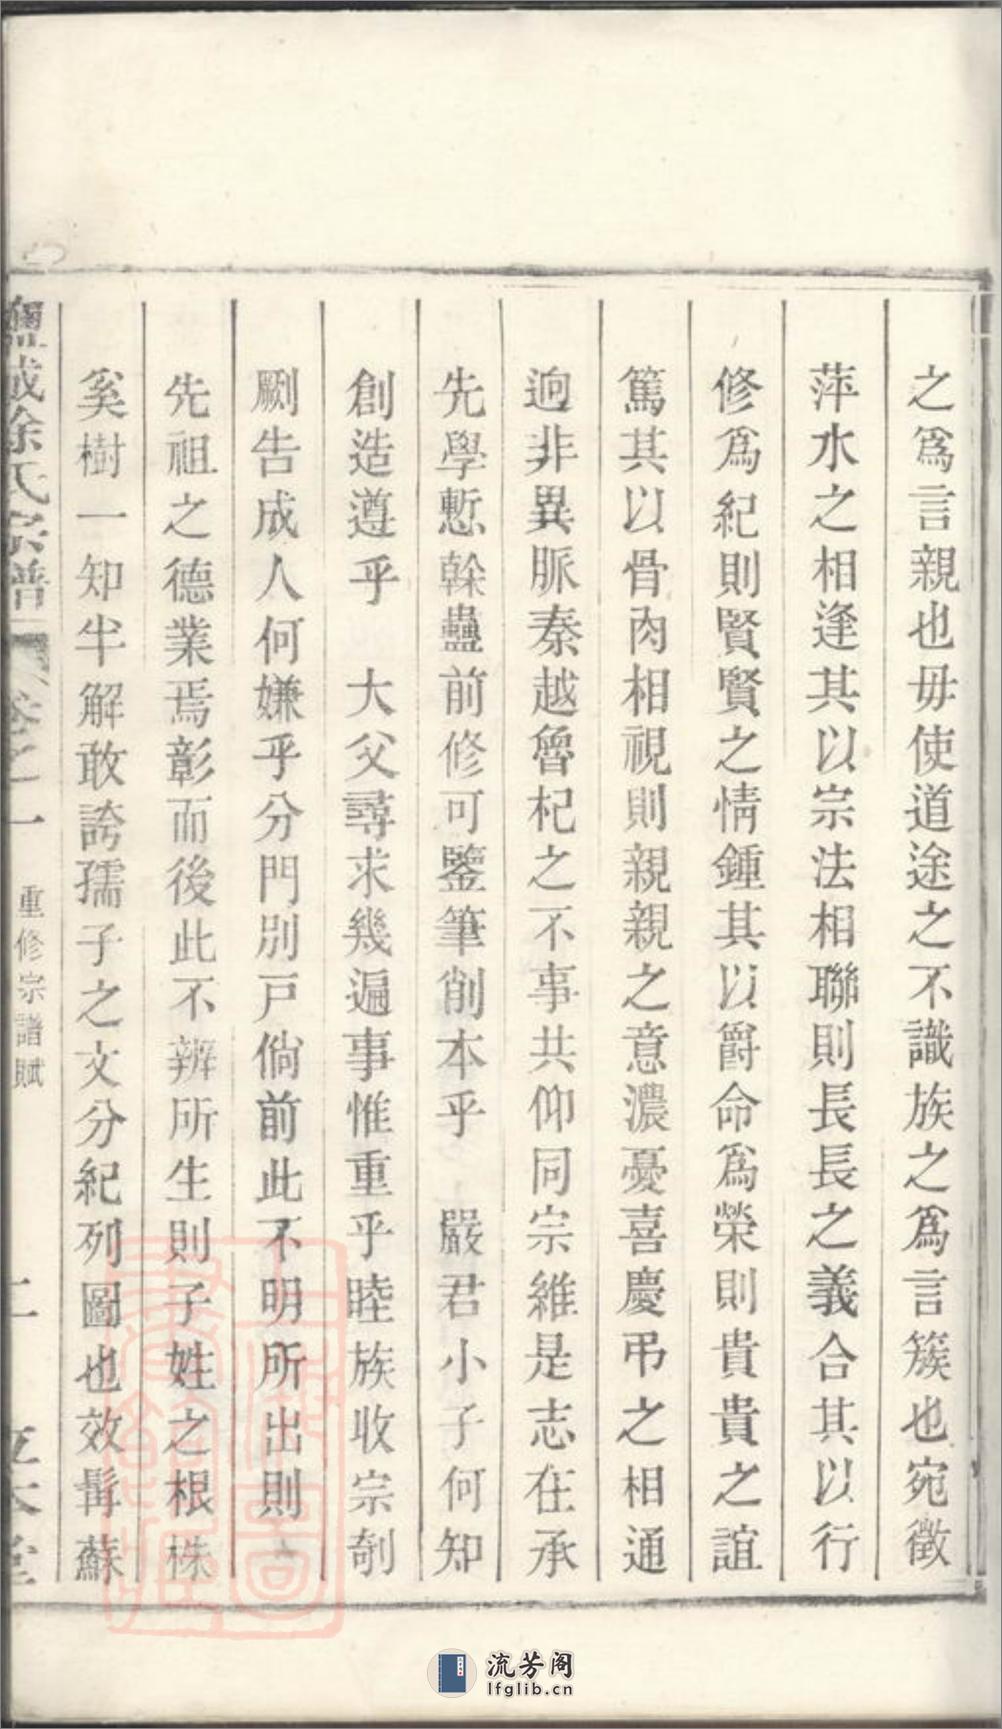 之爲言親也毋使道途之不識族之爲言簇也宛徵
萍水之相逢其以宗法相聯則長長之義合其以行
修爲紀則賢賢之情鍾其以爵命爲榮則貴貴之誼
篤其以骨肉相視則親親之意濃憂喜慶弔之相通
逈非異脈秦越魯杞之不事共仰同宗維是志在承
先學慙榦蠱前修可鑒筆削本乎　嚴君小子何知
創造遵乎　大父尋求幾遍事惟重乎睦族收宗剞
劂告成人何嫌乎分門別戸倘前此不明所出則
先祖之德業焉彰而後此不辨所生則子姓之根株
奚樹一知半解敢誇孺子之文分紀列圖也效髯蘇
鹽城徐氏宗譜 卷之一 重修宗譜賦 二
流芳阁
lfglib.cn